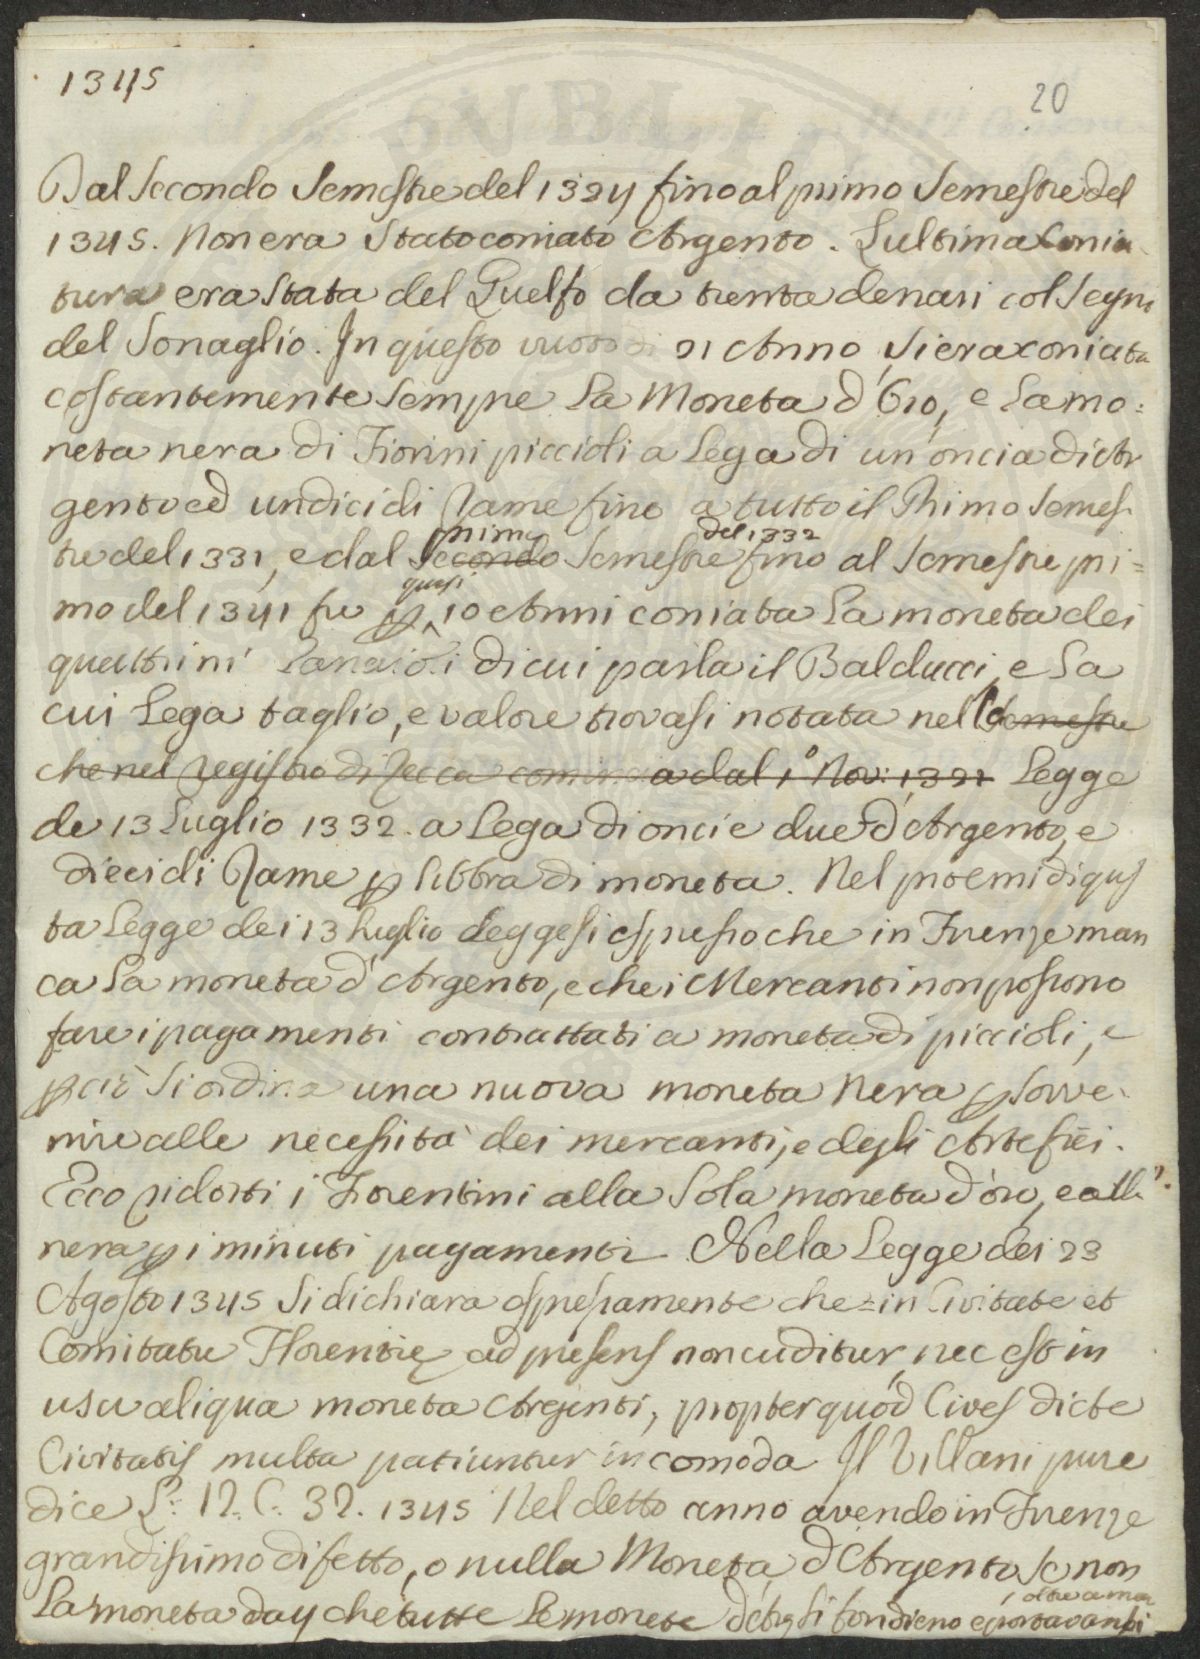 1345
20
Dal Secondo Semestre del 1324 fino al primo Semestre del
1345. Non era Stato coniato Argento. L'ultima Conia
tura era Stata del Guelfo da trenta denari col Segno
del Sonaglio. In questo vuoto di 21 Anno, si era coniata
costantemente Sempre La Moneta d'Oro, e La mo:
neta nera di Fiorini piccioli a Lega di un'oncia d'Ar
gento ed undici di Rame fino a tutto il Primo Semes
tre del 1331, e dal Secondo primo Semestre del 1332 fino al Semestre pri=
mo del 1341 fu p quasi 10 Anni coniata La moneta dei
quattrini Lanaioli di cui parla il Balducci, e La
cui Lega taglio, e valore trovasi notata nella Semestre
che nel registro di Zecca comincia dal 1° Nov: 1321 Legge
de 13 Luglio 1332. a Lega di oncie due d'Argento, e
dieci di Rame p libbra di moneta. Nel proemi di ques
ta Legge dei 13 Luglio Leggesi espresso che in Firenze man
ca La moneta d'Argento, e che i Mercanti non possono
fare i pagamenti contrattati a moneta di piccioli, e
p ciò Si ordina una nuova moneta Nera p Sovve:
nire alle necessità dei mercanti, e degli Artefici.
Ecco ridotti i Fiorentini alla Sola moneta d'oro, e alla
nera p i minuti pagamenti. Nella Legge dei 23
Agosto 1345 Si dichiara espressamente che = in Civitate et
Comitatu Florentie ad presens non cuditur, nec est in
usu aliqua moneta Argenti, propter quod Cives dicte
Civitatis multa patiuntur incomoda. Il Villani pure
dice L: 12. C. 32. 1345 Nel detto anno avendo in Firenze
grandissimo difetto, o nulla Moneta d'Argento Se non
La moneta da 4 che tutte Le monete d'Argento si fondieno e portavansi
oltre a mar